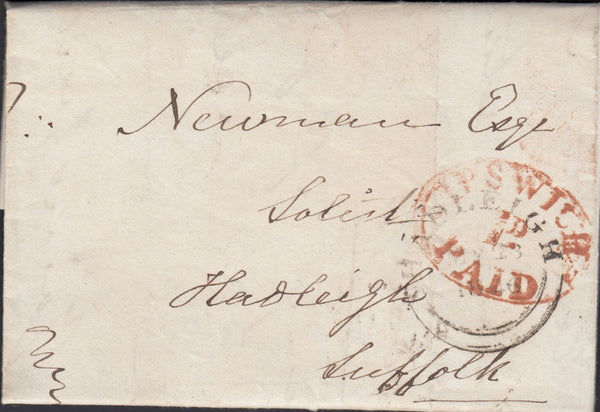 Newman Esqr
Solicit
Hadleigh
Suffolk
IPSWICH
PAID
HADLEIGH